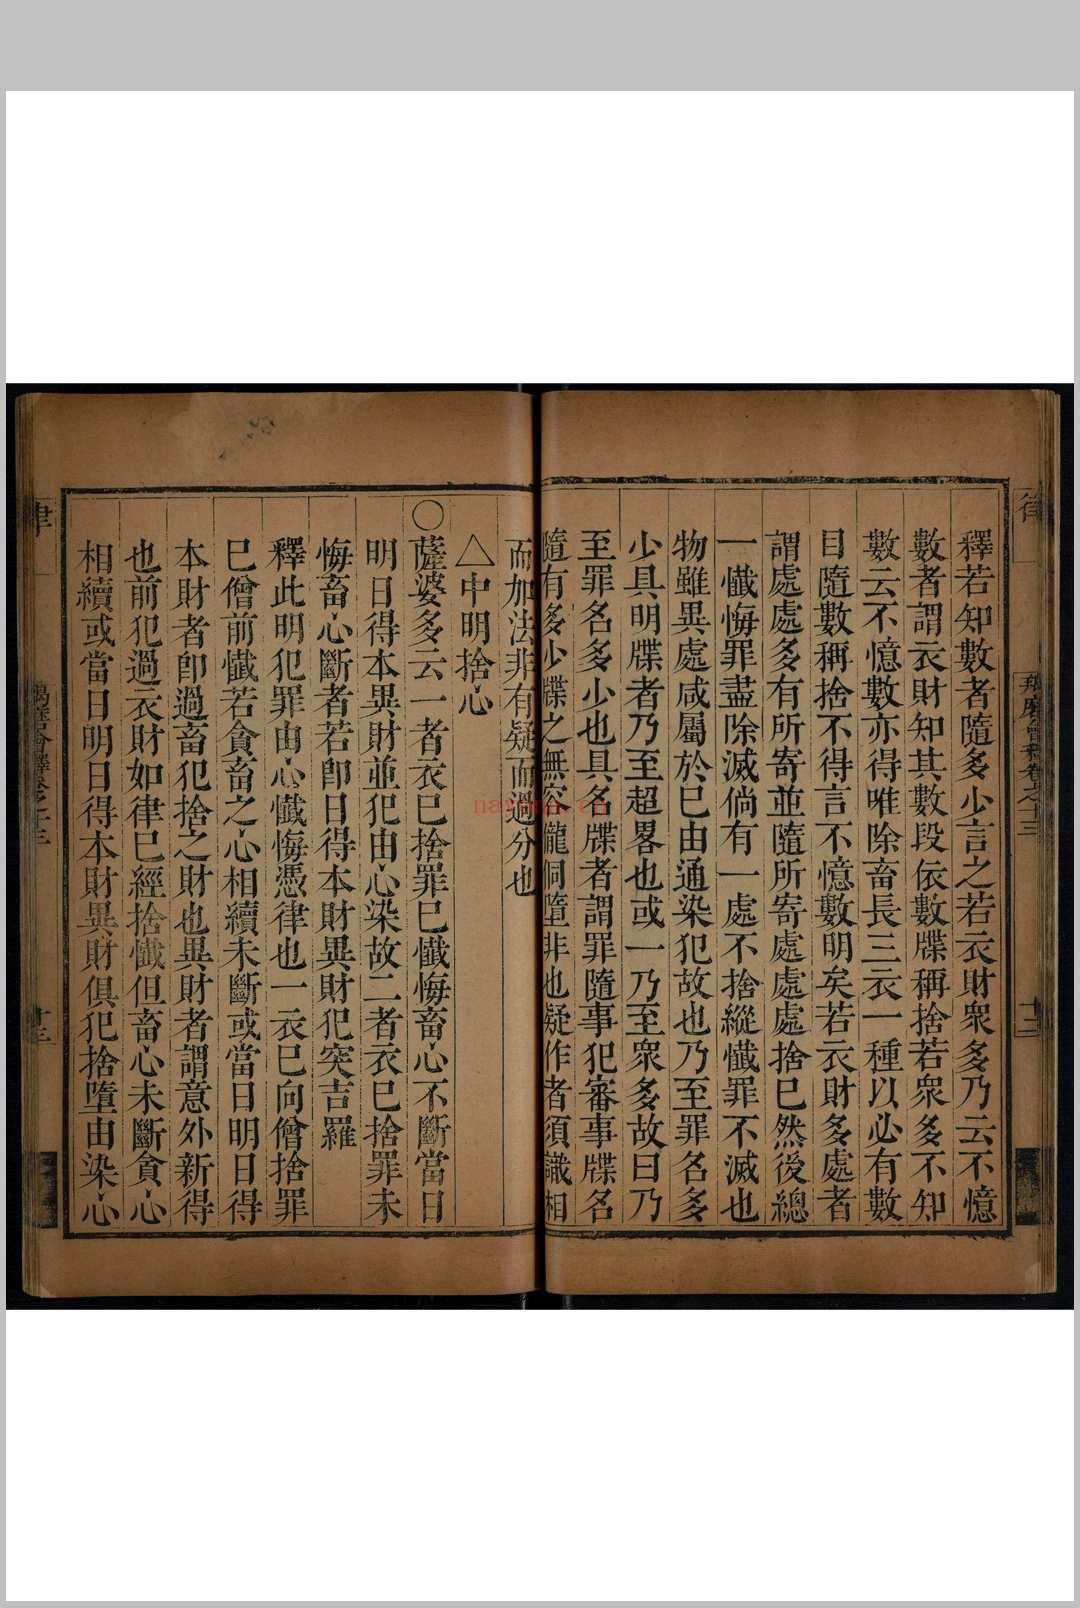 釋若知數者隨多少言之若衣財衆多乃云不憶
數者謂衣財知其數段依數牒稱捨若衆多不知
數云不憶數亦得唯除畜長三衣一種以必有數
目隨數稱捨不得言不憶數明矣若衣財多處者
謂處處多有所寄並隨所寄處處處捨巳然後總
一懺悔罪盡除滅倘有一處不捨縱懺罪不滅也
物雖異處咸屬於巳由通染犯故也乃至罪名多
少具明牒者乃至超畧也或一乃至衆多故曰乃
至罪名多少也具名牒者謂罪隨事犯審事牒名
隨有多少牒之無容儱侗墮非也疑作者須識相
而加法非有疑而過分也
△中明捨心
〇薩婆多云一者衣巳捨罪巳懺悔畜心不斷當日
明日得本異財並犯由心染故二者衣巳捨罪未
悔畜心斷者若卽日得本財異財犯突吉羅
釋此明犯罪由心懺悔憑律也一衣巳向僧捨罪
巳僧前懺若貪畜之心相續未斷或當日明日得
本財者卽過畜犯捨之財也異財者謂意外新得
也前犯過衣財如律巳經捨懺但畜心未斷貪心
相續或當日明日得本財異財俱犯捨墮由染心
羯磨會釋卷之十三
十三
nayona.cn